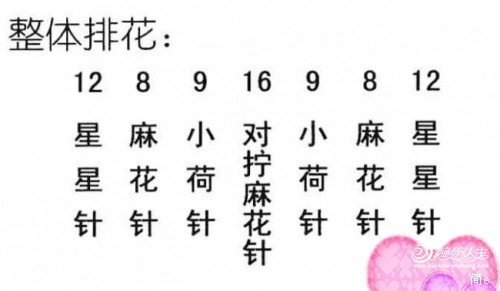 整体排花：
12 8 9 16 9 8 12
星星针 麻花针 小荷针 对拧麻花针 小荷针 麻花针 星星针
编织人生
简。